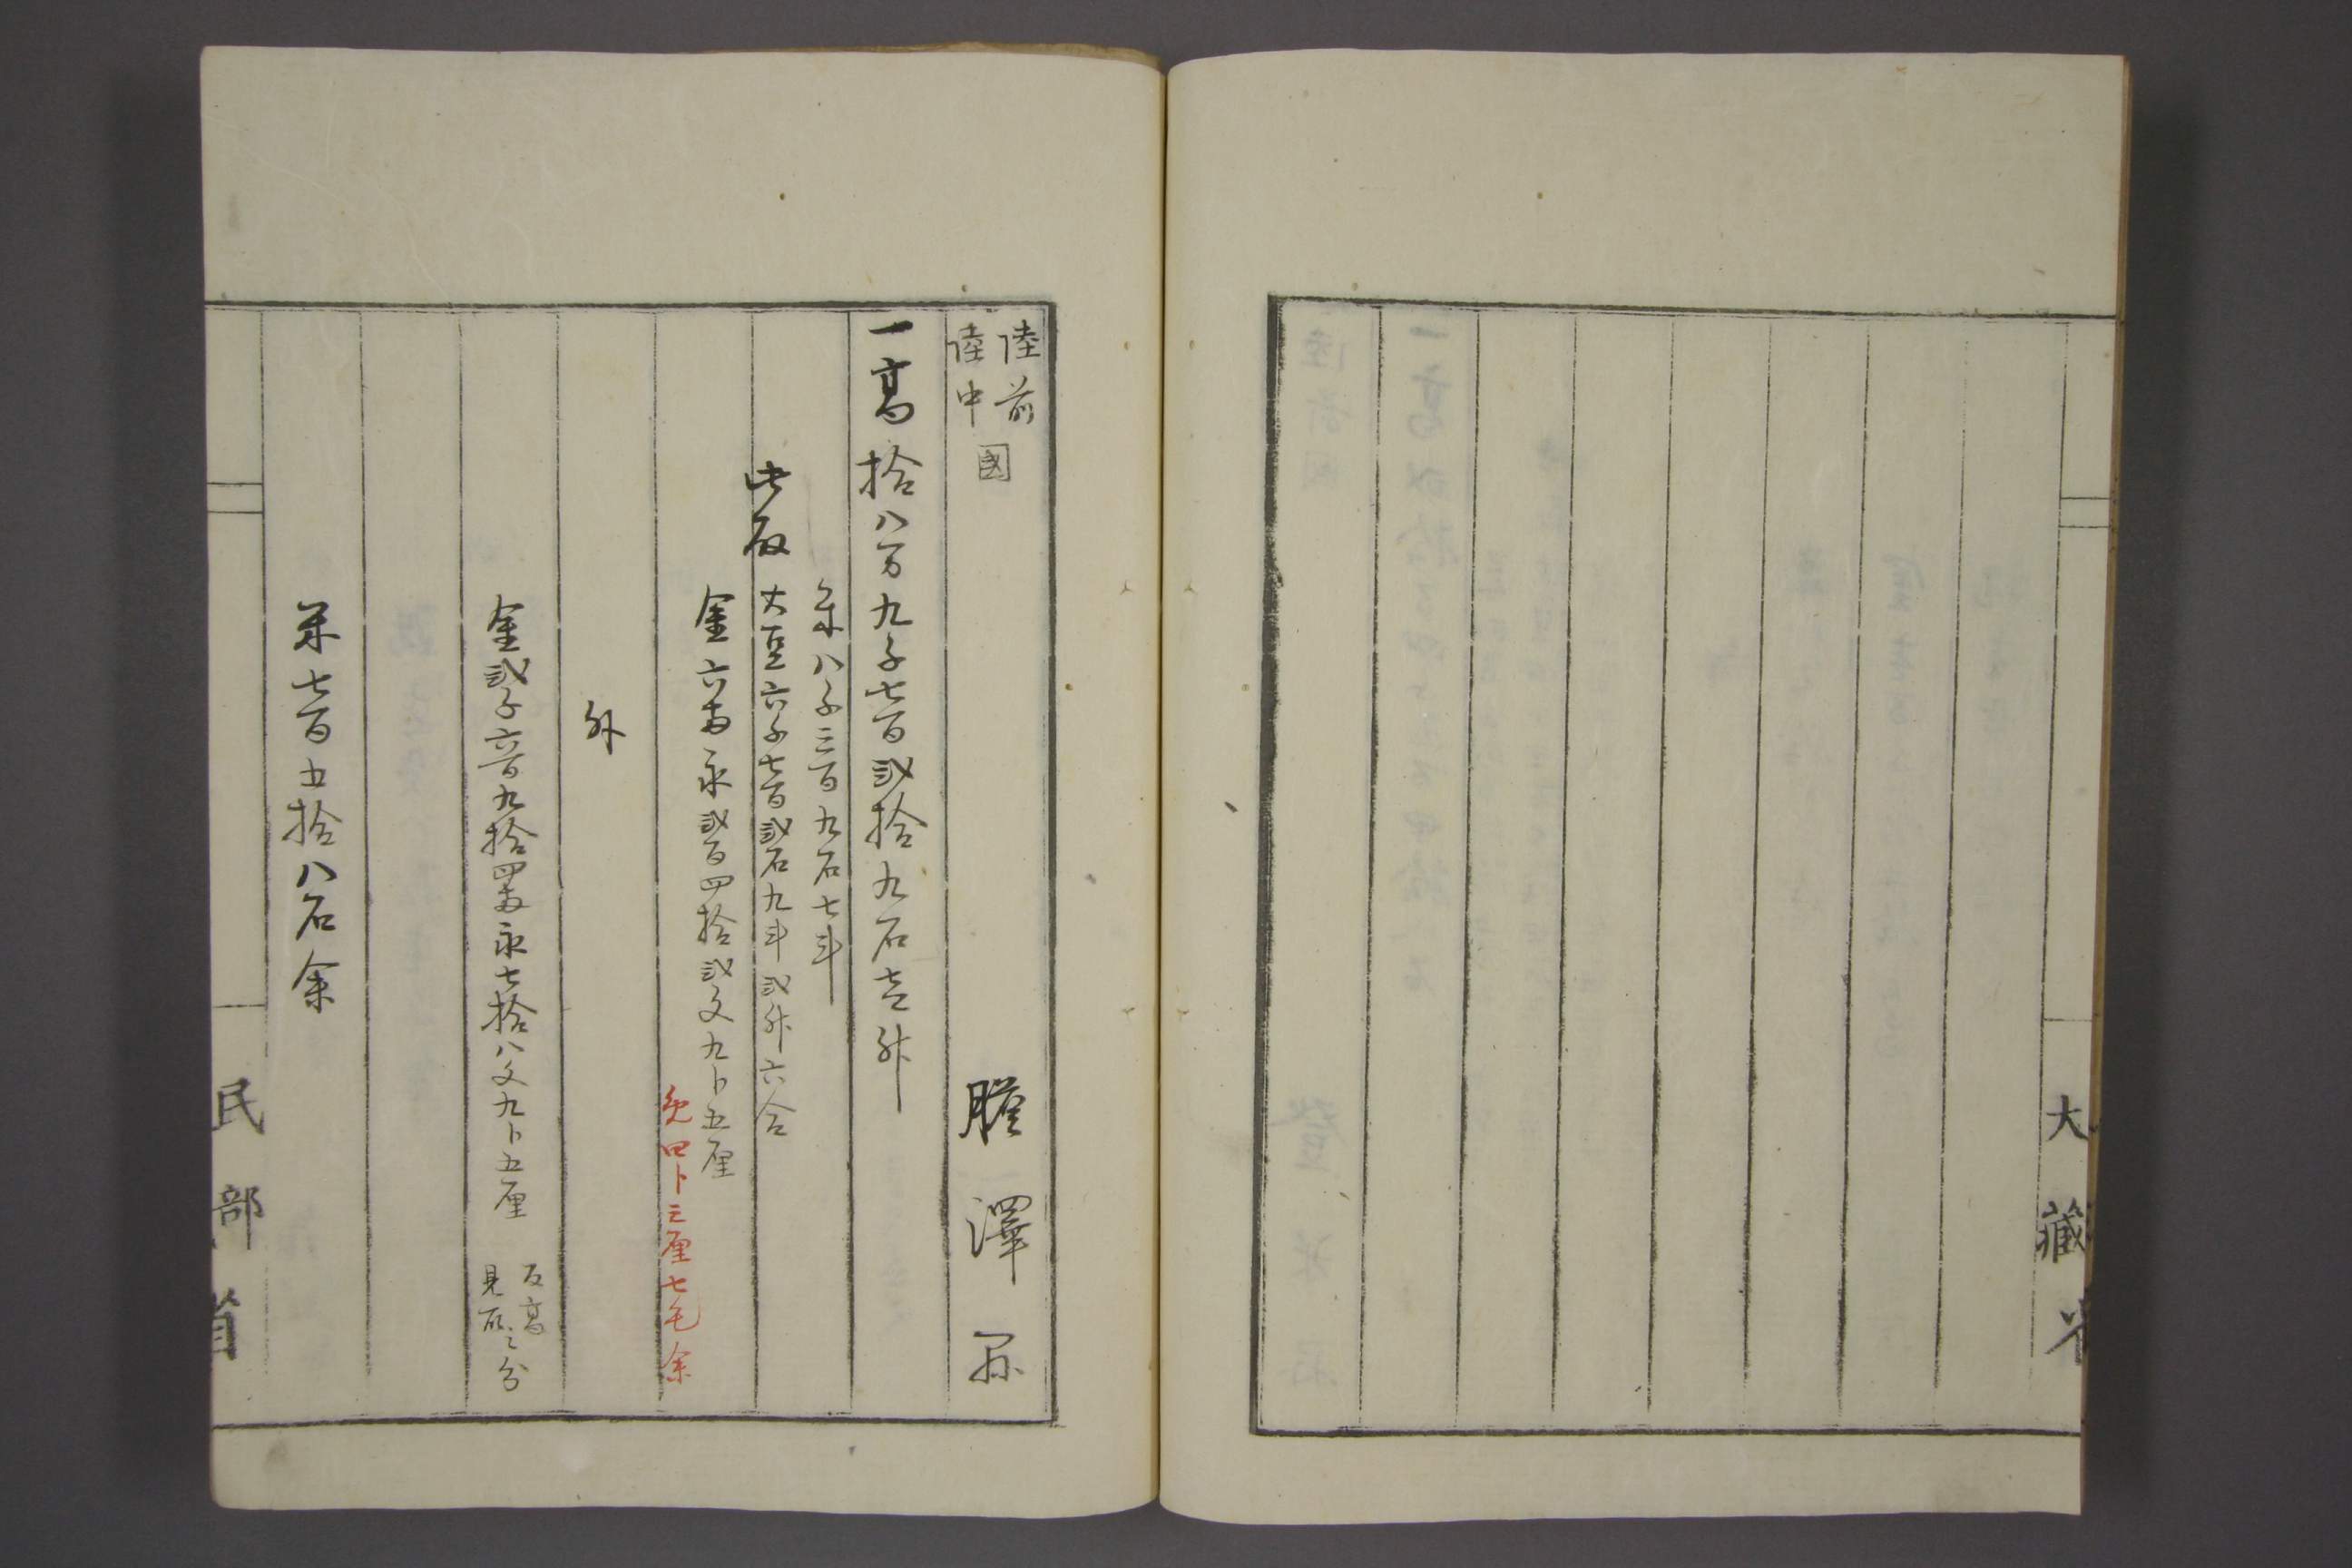 大藏省
陸前
陸中
國
膽澤縣
一高拾八万九千七百貳拾九石壱升
此取
米八千三百九石七斗
大豆六千七百貳石九斗貳升六合
金六両永貳百四拾貳文九卜五厘
免四卜三厘七毛余
外
金貳千六百九拾四両永七拾八文九卜五厘
反高
見取之分
米七百五拾八石余
民部省